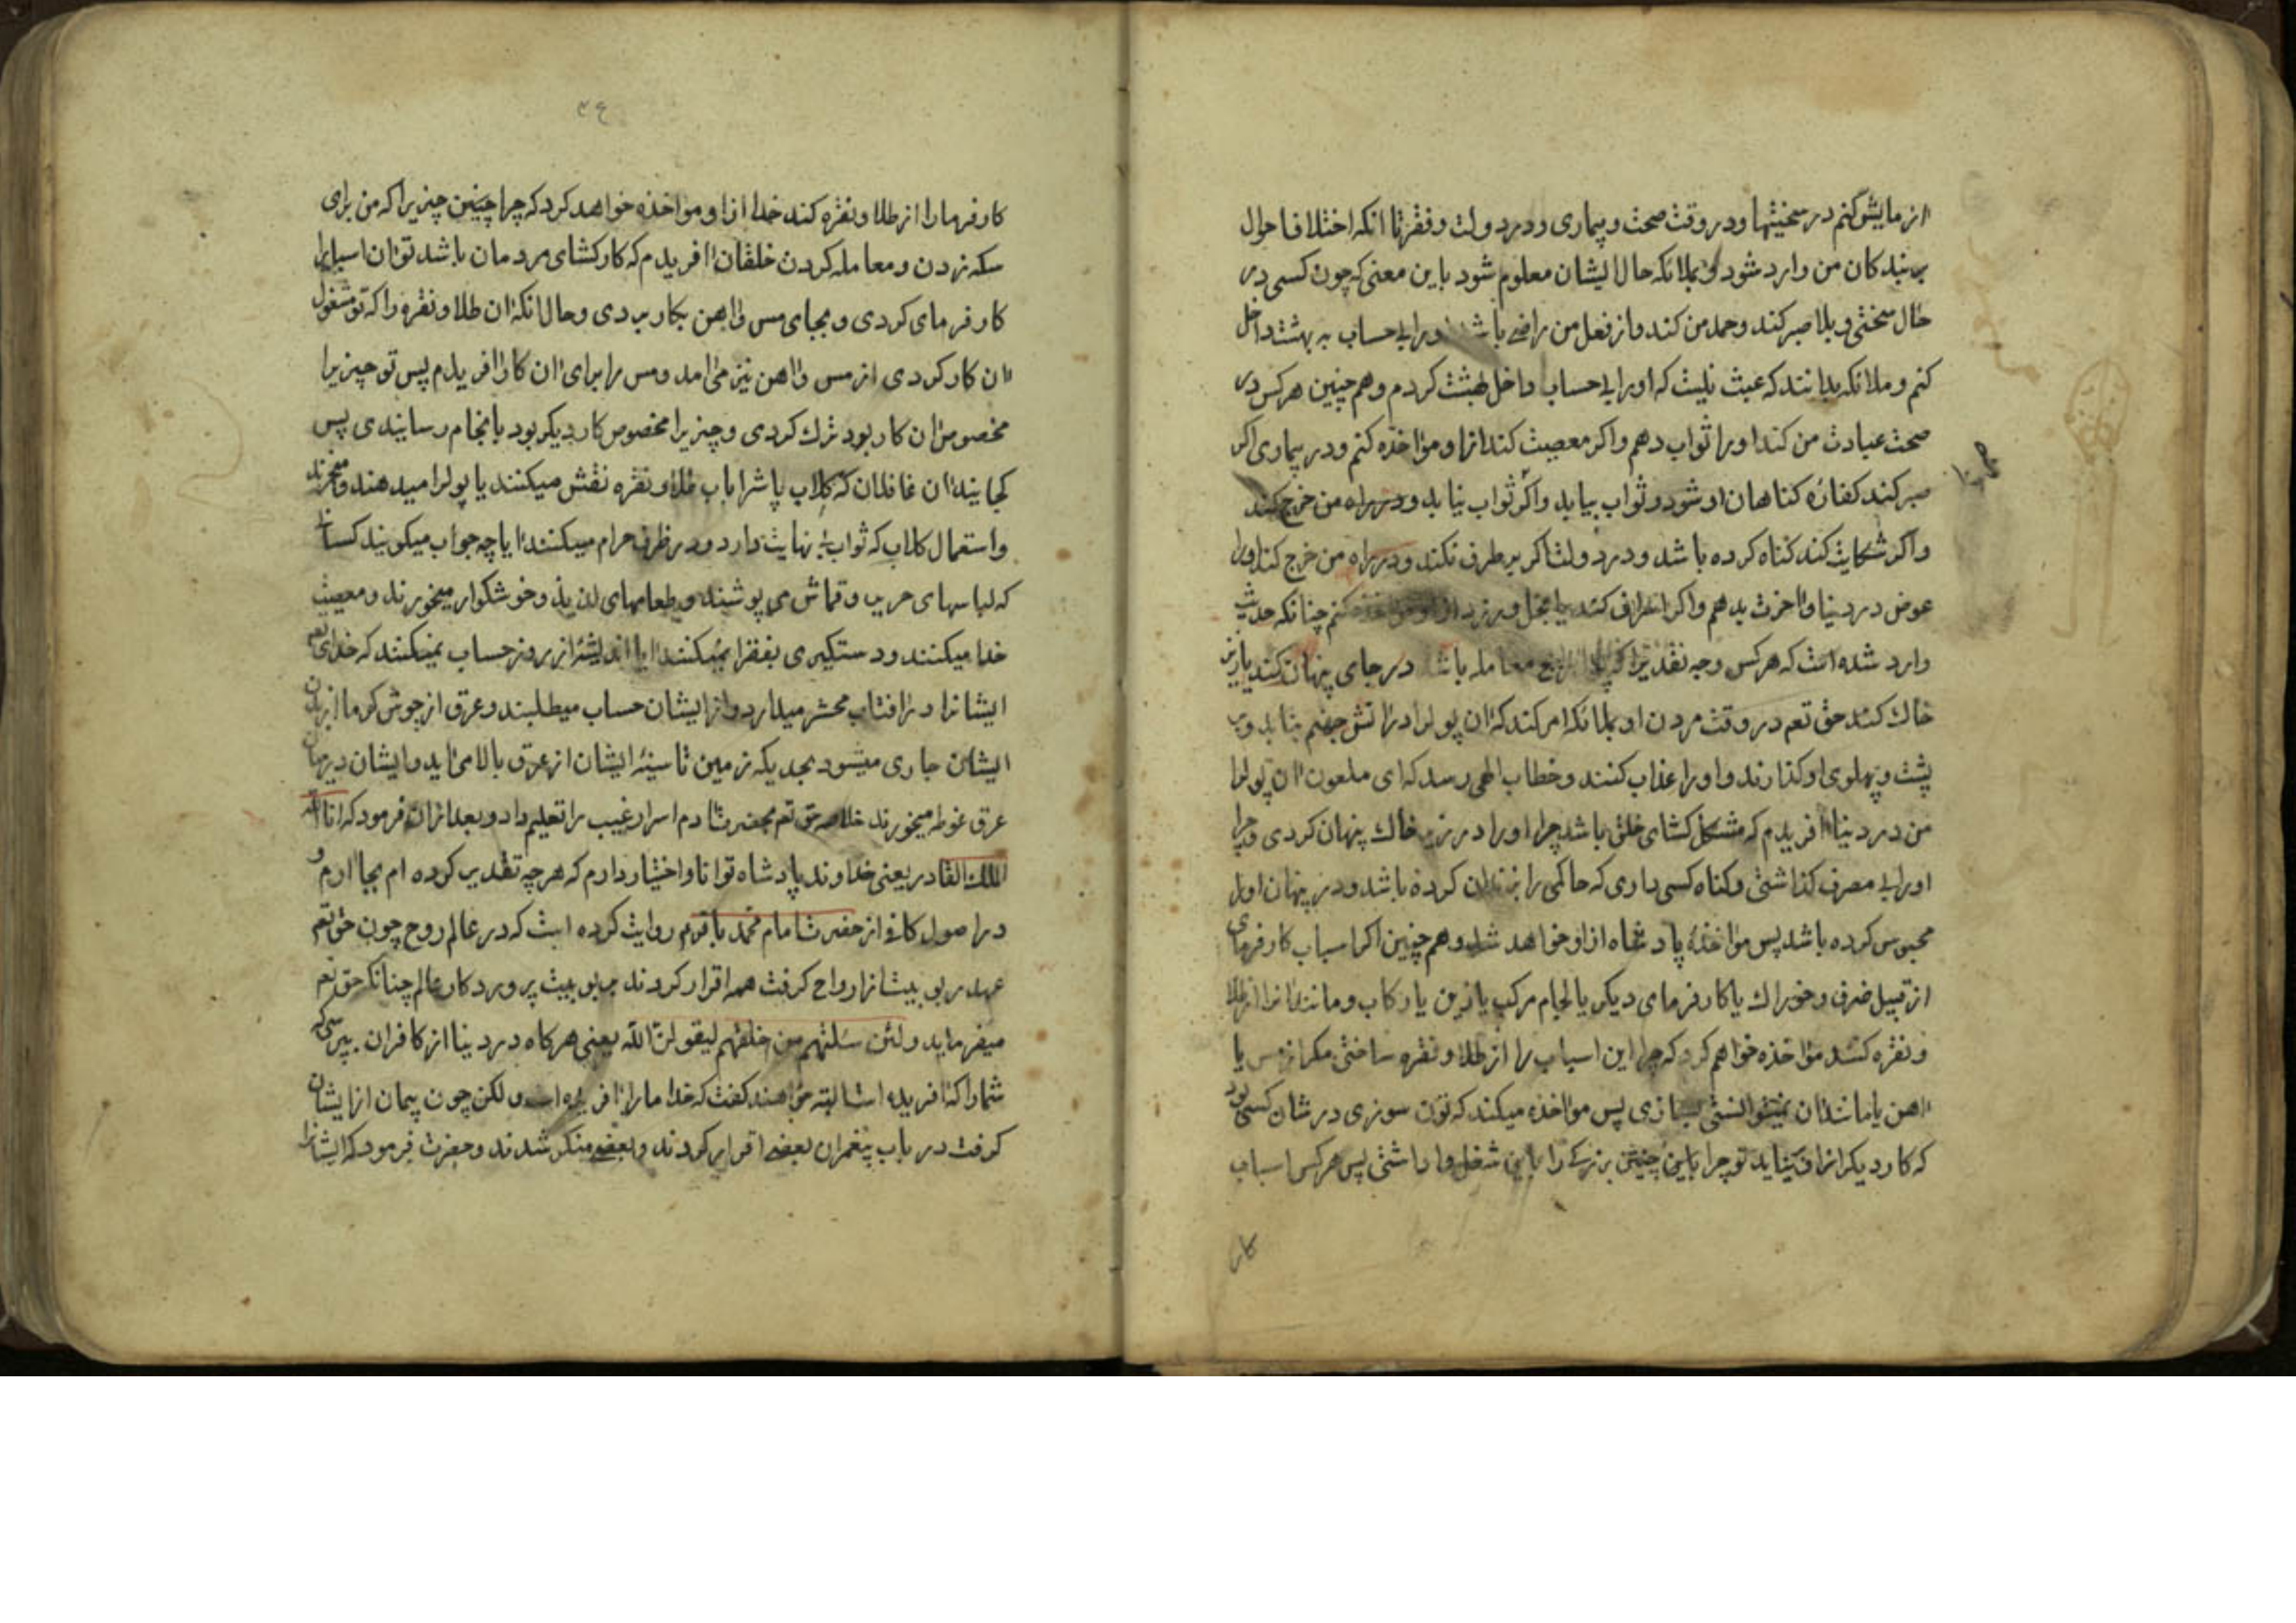 ازمایش کنم در سختیها و در وقت صحت و بیماری و در دولت و فقر تا انکه اختلاف احوال
بر بندکان من وارد شود و بملائکه حال ایشان معلوم شود باین معنی که چون کسی در
حال سختی و بلا صبر کند و حمد من کند و از فعل من راضی باشد اورا بی حساب به بهشت داخل
کنم و ملائکه بدانند که عبث نیست که اورا بی حساب داخل بهشت کردم و هم چنین هر کس در
صحت عبادت من کند اورا ثواب دهم و اکر معصیت کند ازاو مؤاخذه کنم و در بیماری اکر
صبر کند کفاره کناهان او شود و ثواب بیابد و اکر ثواب نیابد و در راه من خرج کند
و اکر شکایت کند کناه کرده باشد و در دولت اکر بر طرف نکند و در راه من خرج کند اورا
عوض در دنیا و اخرت بدهم و اکر اسراف کند یا بخل ورزد از او مؤاخذه کنم چنانکه حدیث
وارد شده است که هر کس وجه نقدیرا که رایج معامله باشد در جای پنهان کند یا زیر
خاك کند حق تعم در وقت مردن او بملائکه امر کند که ان پولرا در اتش جهنم بتابد و بر
پشت و پهلوی او کذارند و اورا عذاب کنند و خطاب الهی رسد که ای ملعون ان پولرا
من در دنیا افریدم که مشکل کشای خلق باشد چرا اورا در زیر خاك پنهان کردی و چرا
اورا بی مصرف کذاشتی و کناه کسی داری که حاکمی را بزندان کرده باشد و در پنهان اورا
محبوس کرده باشد پس مؤاخذه پادشاه ازاو خواهد شد و هم چنین اکر اسباب کارفرمای
از قبیل ضرف و خوراك یا کارفرمای دیکر یا لجام مرکب یا زین یا رکاب و مانند انرا از طلا
و نقره کند مؤاخذه خواهم کرد که چرا این اسباب را از طلا و نقره ساختی مکر از مس یا
اهن یا مانند ان نمیتوانستی بسازی پس مؤاخذه میکند که تؤن سوزی در شان کسی بود
که کار دیکر ازاو نیاید تو چرا باین چنین بزرکی را باین شغل وا داشتی پس هر کس اسباب
کار
۳۶
کارفرمارا از طلا و نقره کند خدا ازاو مؤاخذه خواهد کرد که چرا چنین چیزیرا که من برای
سکه زدن و معامله کردن خلقان افریدم که کارکشای مردمان باشد تو ان اسبابرا
کارفرمای کردی و بجای مس و اهن بکار بردی و حال انکه ان طلا و نقره را که تو مشغول
ان کار کردی از مس و اهن نیز می امد و مس را برای ان کار افریدم پس تو چیزیرا
مخصوص ان کار بود ترك کردی و چیزیرا مخصوص کار دیکر بود بانجام رسانیدی پس
کجایند ان غافلان که کلاب پاشرا باب طلا و نقره نقش میکنند یا پولرا میدهند و میخرند
و استعمال کلاب که ثواب بی نهایت دارد و در ظرف حرام میکنند ایا چه جواب میکویند کسانی
که لباسهای حریر و قماش می پوشند و طعامهای لذیذ و خوشکوار میخورند و معصیت
خدا میکنند و دستکیری بفقرا نمیکنند ایا اندیشه از روز حساب نمیکنند که خدای تعم
ایشانرا در افتاب محشر میدارد و از ایشان حساب میطلبند و عرق از جوش کرما از بدن
ایشان جاری میشود بحدیکه زمین تا سینه ایشان از عرق بالا می اید و ایشان در میان
عرق غوطه میخورند خلاصه حق تعم بحضرت ادم اسرار غیب را تعلیم داد و بعد از ان فرمود که انا الله
الملك القادر یعنی خداوند پادشاه توانا و اختیار دارم که هر چه تقدیر کرده ام بجا ارم و
در اصول کافی از حضرت امام محمد باقرم روایت کرده است که در عالم روح چون حق تعم
عهد ربوبیت از ارواح کرفت همه اقرار کردند بربوبیت پروردکار عالم چنانکه حق تعم
میفرماید ولئن سئلتهم من خلقهم لیقولن الله یعنی هر کاه در دنیا از کافران بپرسی که
شمارا که افریده است البته خواهند کفت که خدا مارا افریده است و لکن چون پیمان از ایشان
کرفت در باب پیغمران بعضی اقرار کردند و بعضی منکر شدند و حضرت فرمود که ایشانرا